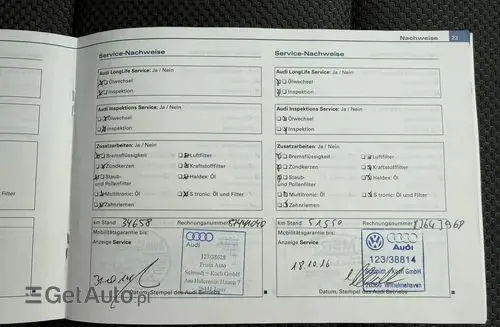 Nachweise 23
Service-Nachweise
Audi LongLife Service: Ja / Nein
Ölwechsel
Inspektion
Audi Inspektions Service: Ja / Nein
Ölwechsel
Inspektion
Zusatzarbeiten: Ja / Nein
Bremsflüssigkeit Luftfilter
Zündkerzen Kraftstofffilter
Staub- Haldex: Öl
und Pollenfilter
Multitronic: Öl S tronic: Öl und Filter
Zahnriemen
km Stand 34658 Rechnungsnummer
Mobilitätsgarantie bis:
Anzeige Service
Audi
123/38628
Friesic Auto
Schmidt + Koch GmbH
26441 Jever
Datum, Stempel des Audi Betriebs
Service-Nachweise
Audi LongLife Service: Ja / Nein
Ölwechsel
Inspektion
Audi Inspektions Service: Ja / Nein
Ölwechsel
Inspektion
Zusatzarbeiten: Ja / Nein
Bremsflüssigkeit Luftfilter
Zündkerzen Kraftstofffilter
Staub- Haldex: Öl
und Pollenfilter
Multitronic: Öl S tronic: Öl und Filter
Zahnriemen
km Stand 51550 Rechnungsnummer
Mobilitätsgarantie bis:
Anzeige Service
18.10.16
Audi
123/38814
Schmidt + Koch GmbH
26389 Wilhelmshaven
Datum, Stempel des Audi Betriebs
Filter
GetAuto.pl